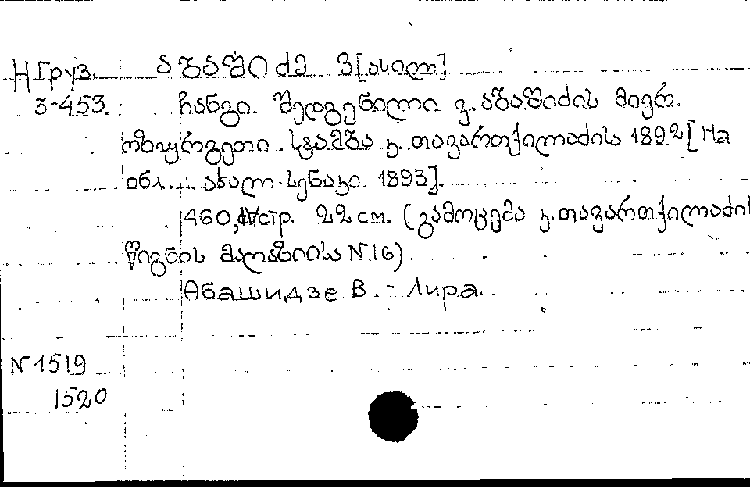 Н Груз. აბაშიძე ვ[ასილ]
3-453. ჩანგი. შედგენილი ვ. აბაშიძის მიერ.
ოზურგეთი. სტამბა კ. თავართქილაძის 1892 [На
обл. ახალ-სენაკი. 1893].
460, IV стр. 22 см. (გამოცემა კ. თავართქილაძის
წიგნის მაღაზიისა N 16)
Абашидзе В. - Лира.
N 1519
1520